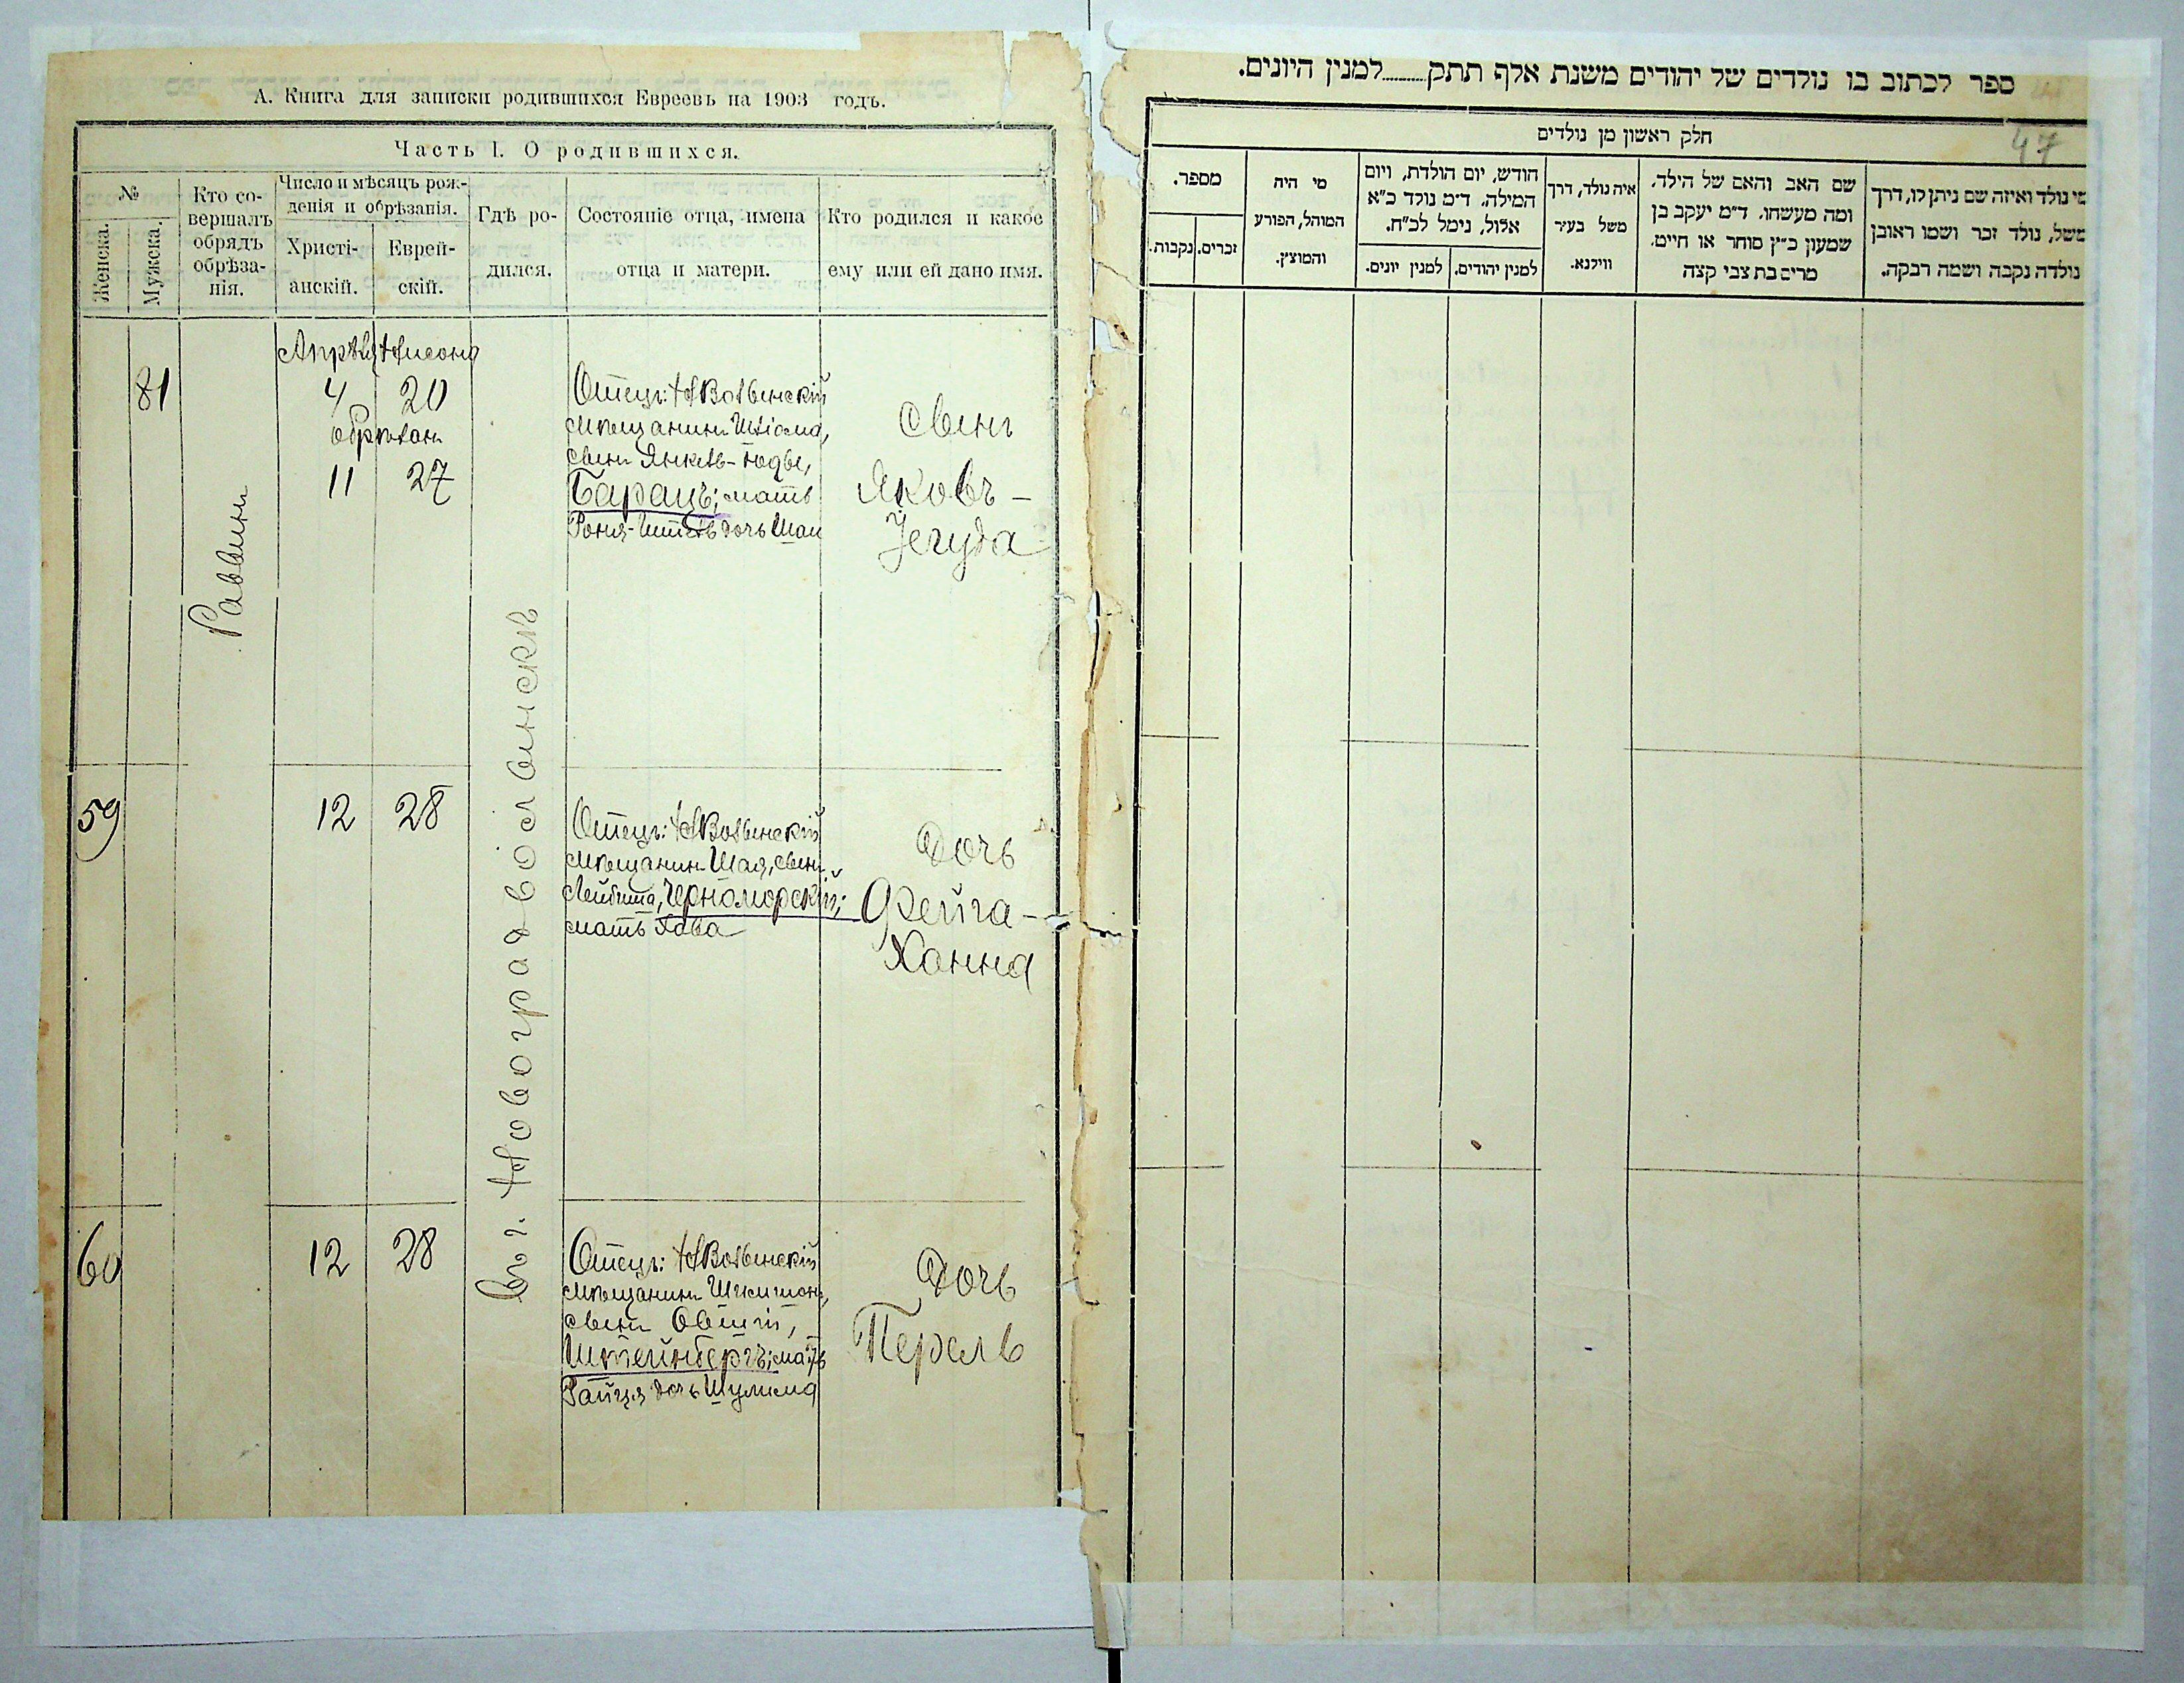 А. Книга для записки родившихся Евреевъ на 1903 годъ.
Часть I. О родившихся.
№
Женска.
Мужска.
Кто со-
вершалъ
обрядъ
обрѣза-
нія.
Число и мѣсяцъ рож-
денія и обрѣзанія.
Христі-
анскій.
Еврей-
скій.
Гдѣ ро-
дился.
Состояніе отца, имена
отца и матери.
Кто родился и какое
ему или ей дано имя.
Раввинъ
Въ г. Новоградволынскѣ
Апрѣля Нисона
81 4 20
обрѣзанъ
11 27
Отецъ: НВолынскій
мѣщанинъ Шлiома,
сынъ Янкель-Юды,
Барацъ; мать
Роня- дочь Шаи
Сынъ
Яковъ-
Іегуда
59 12 28
Отецъ: НВолынскій
мѣщанинъ Шая, сынъ
Лейбиша, Черноморскій;
мать Хава
Дочь
Фейга-
Ханна
60 12 28
Отецъ: НВолынскій
мѣщанинъ
сынъ Овшіи,
Штейнбергъ; мать
Райця дочь Шулима
Дочь
Перель
ספר לכתוב בו נולדים של יהודים משנת אלף תתק........למנין היונים.
47
חלק ראשון מן נולדים
מספר.
זכרים.
נקבות.
מי היה
המוהל, הפורע
והמוצץ.
חודש, יום הולדת, ויום
המילה. ד״מ נולד כ״א
אלול, נימל לכ״ח.
למנין יהודים.
למנין יונים.
איה נולד, דרך
משל בעיר
ווילנא.
שם האב והאם של הילד,
ומה מעשהו. ד״מ יעקב בן
שמעון כ״ץ סוחר או חייט.
מרים בת צבי קצה
מי נולד ואיזה שם ניתן לו, דרך
משל, נולד זכר ושמו ראובן
נולדה נקבה ושמה רבקה.